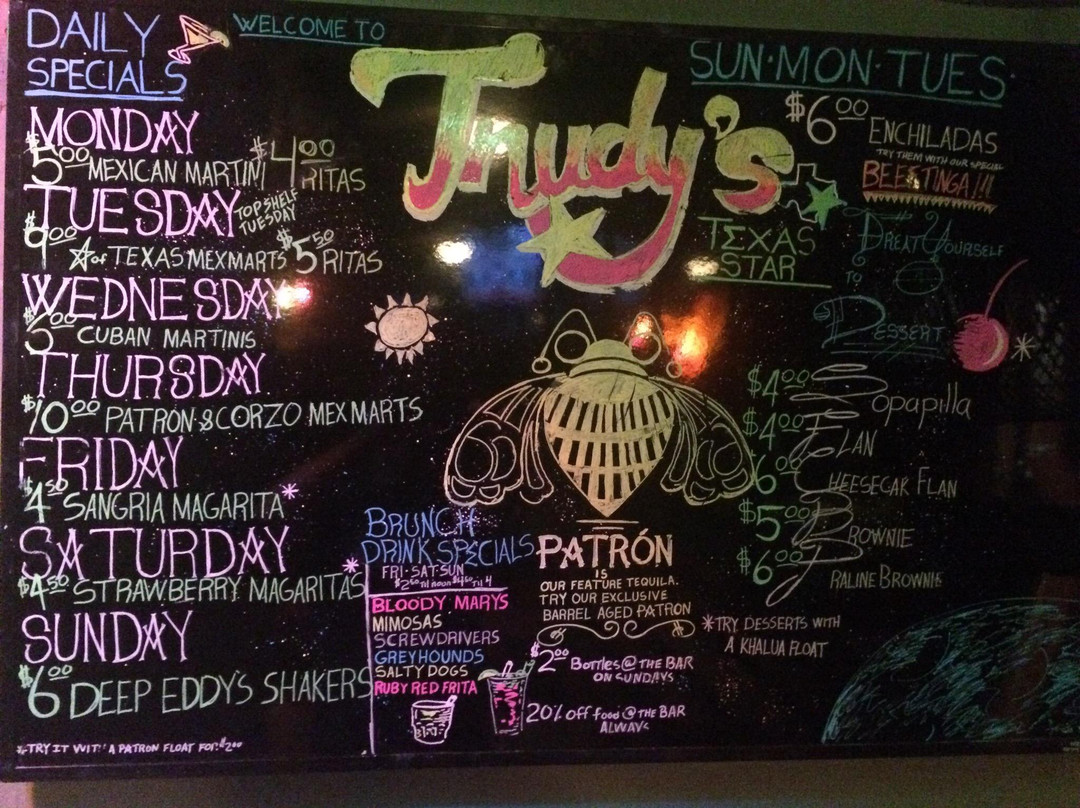 DAILY
SPECIALS
MONDAY
$5.00 MEXICAN MARTINI $4.00 RITAS
TUESDAY TOP SHELF
TUESDAY
$9.00 of TEXAS MEXMARTS $5.50 RITAS
WEDNESDAY
CUBAN MARTINIS
THURSDAY
$10.00 PATRÓN & CORZO MEXMARTS
FRIDAY
$4.50 SANGRIA MAGARITA*
SATURDAY
$4.50 STRAWBERRY MAGARITAS*
SUNDAY
$6.00 DEEP EDDY'S SHAKERS
*TRY IT WITH A PATRON FLOAT FOR $2.00
WELCOME TO
Trudy's
TEXAS
STAR
BRUNCH
DRINK SPECIALS
FRI·SAT·SUN
$2.50 Til noon $4.50 Til 4
BLOODY MARYS
MIMOSAS
SCREWDRIVERS
GREYHOUNDS
SALTY DOGS
RUBY RED FRITA
PATRÓN
IS
OUR FEATURE TEQUILA.
TRY OUR EXCLUSIVE
BARREL AGED PATRON
$2.00 BOTTLES @ THE BAR
ON SUNDAYS
20% off food @ THE BAR
ALWAYS
SUN·MON·TUES·
$6.00 ENCHILADAS
TRY THEM WITH OUR SPECIAL
BEEFTINGA!!!
TREAT YOURSELF
TO
DESSERT
$4.00 Sopapilla
$4.00 FLAN
6.00 CHEESECAK FLAN
$5.00 BROWNIE
$6.00 PRALINE BROWNIE
*TRY DESSERTS WITH
A KHALUA FLOAT